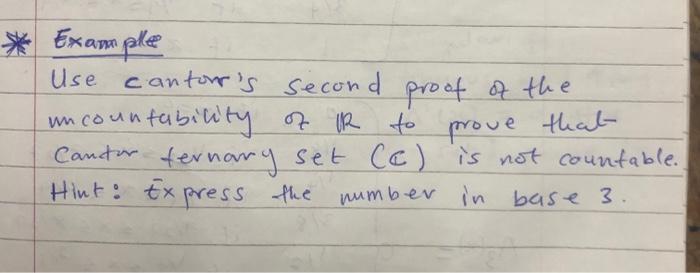 * Example
Use cantor's second proof of the
uncountability of ℝ to prove that
Cantor ternary set (C) is not countable.
Hint: Express the number in base 3.